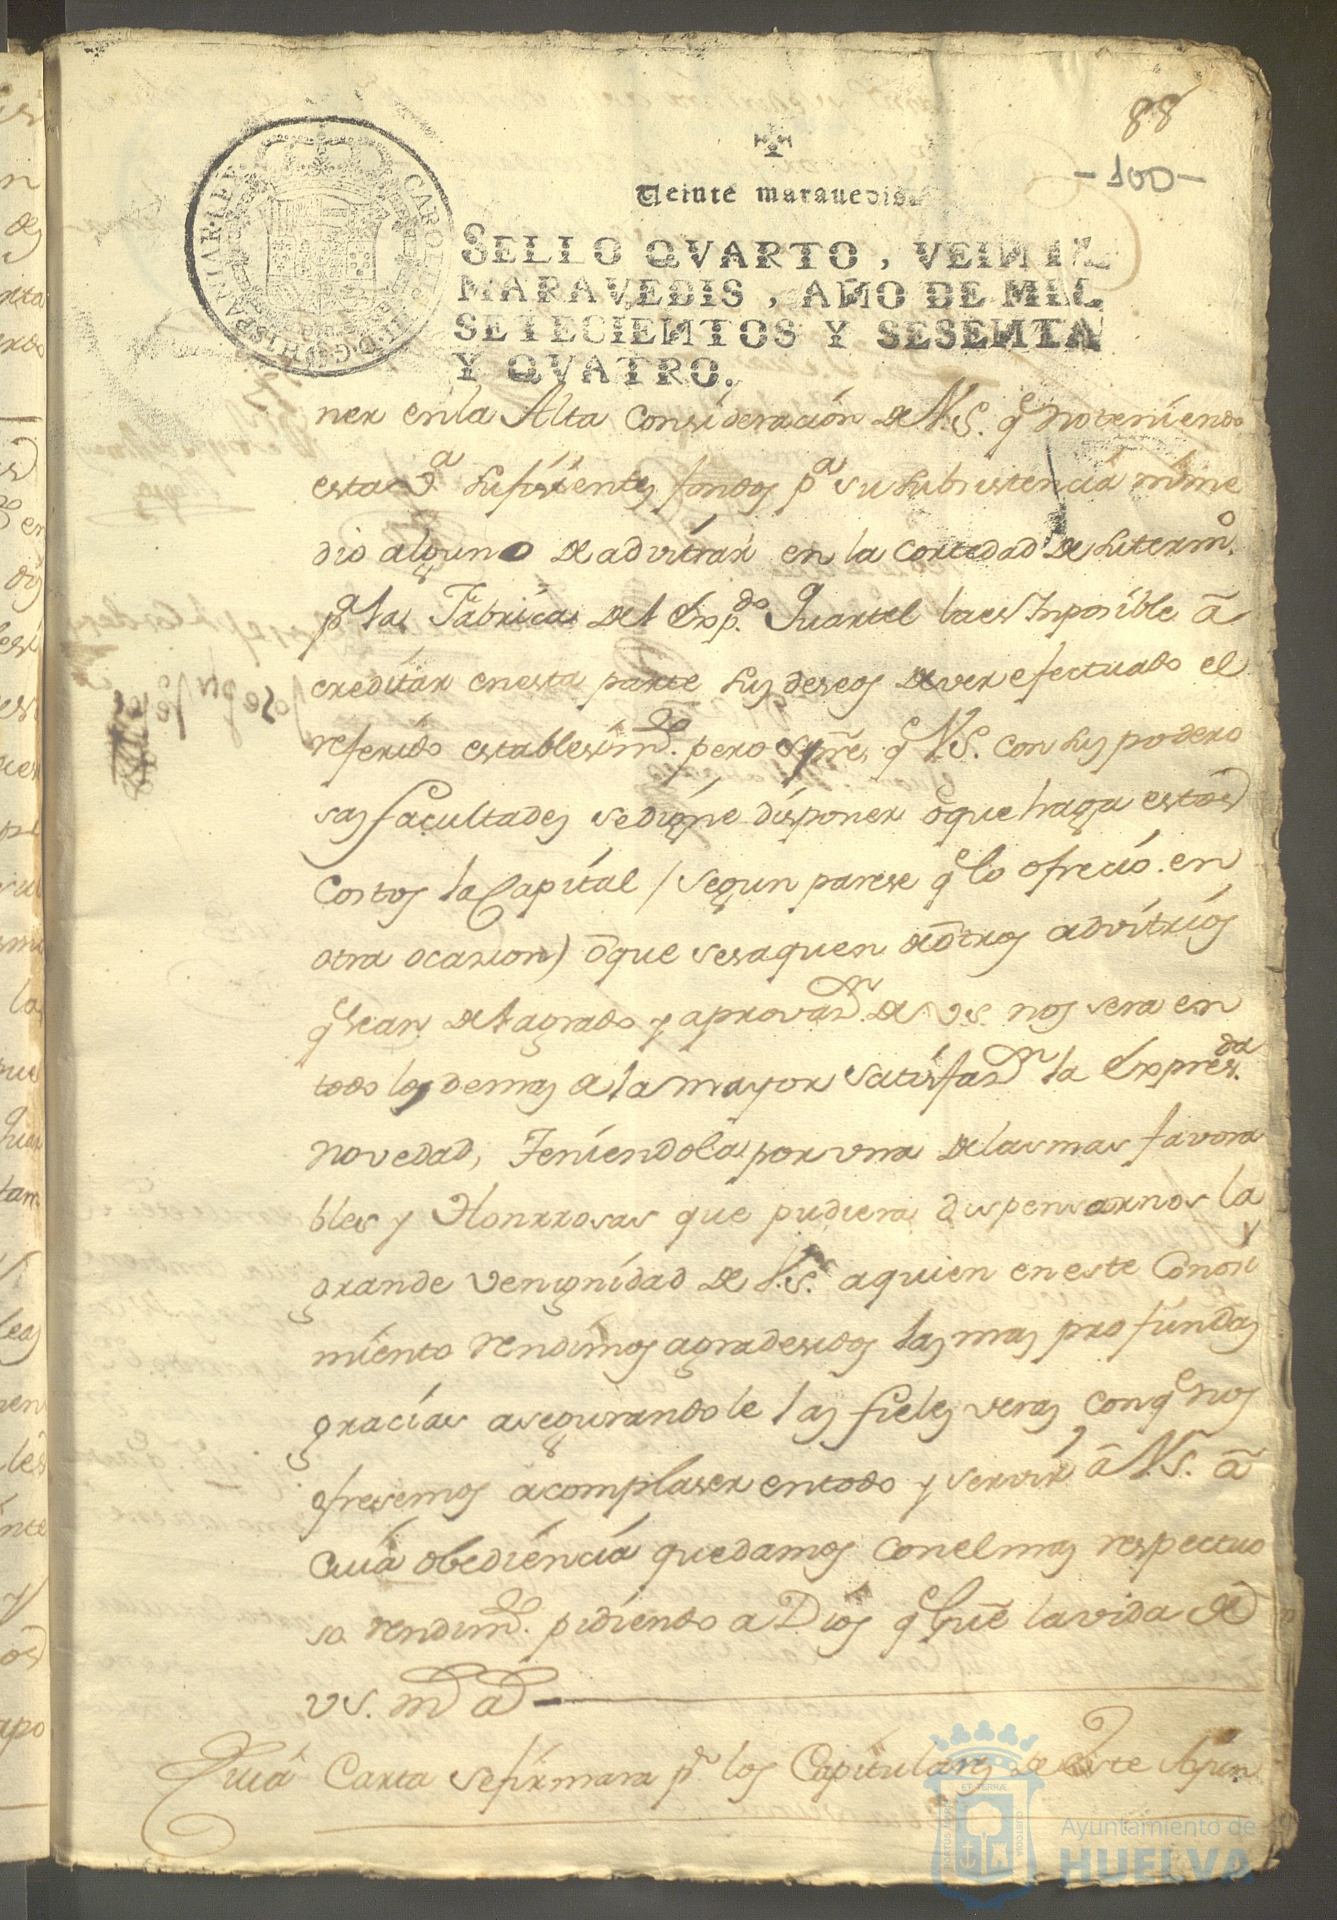 88
-100-
Veinte maravedis.
SELLO QVARTO, VEINTE
MARAVEDIS, AÑO DE MIL
SETECIENTOS Y SESENTA
Y QVATRO.
CAROLVS III D.G. HISPANIAR. REX
ner en la Alta Consideracion de V.S. q̃ no teniendo
esta suficientes fondos pª su subsistencia ni me
dio alguno de advitrar en la cortedad de su termº.
pª la Fabrica del Expdo. Quartel la es Imposible a
creditar en esta parte sus deseos de ver efectuado el
referido establesimto. pero q̃ V.S. con sus podero
sas facultades se digne disponer o que haga estos
Costos la Capital / segun parese q̃ lo ofrecio en
otra ocasion) o que se saquen de otros advitrios
q̃ sean del agrado y aprovazn. de V.S. nos sera en
todo lo demas de la mayor satisfazn. la Expresda.
novedad, Teniendola por una de las mas favora
bles y Honrrosas que pudiera dispensarnos la
grande venignidad de V.S. a quien en este Conosi
miento rendimos agradesidos las mas profundas
gracias asegurandole las fieles veras con q̃ nos
ofresemos a complaser en todo y servir a V.S. a
cuia obediencia quedamos con el mas respectuo
so rendimto. pidiendo a Dios q̃ gue̅ la vida de
V.S. ms. as.
Cuia Carta se firmara pr. los Capitulares de este Ayun
Ayuntamiento de
HUELVA